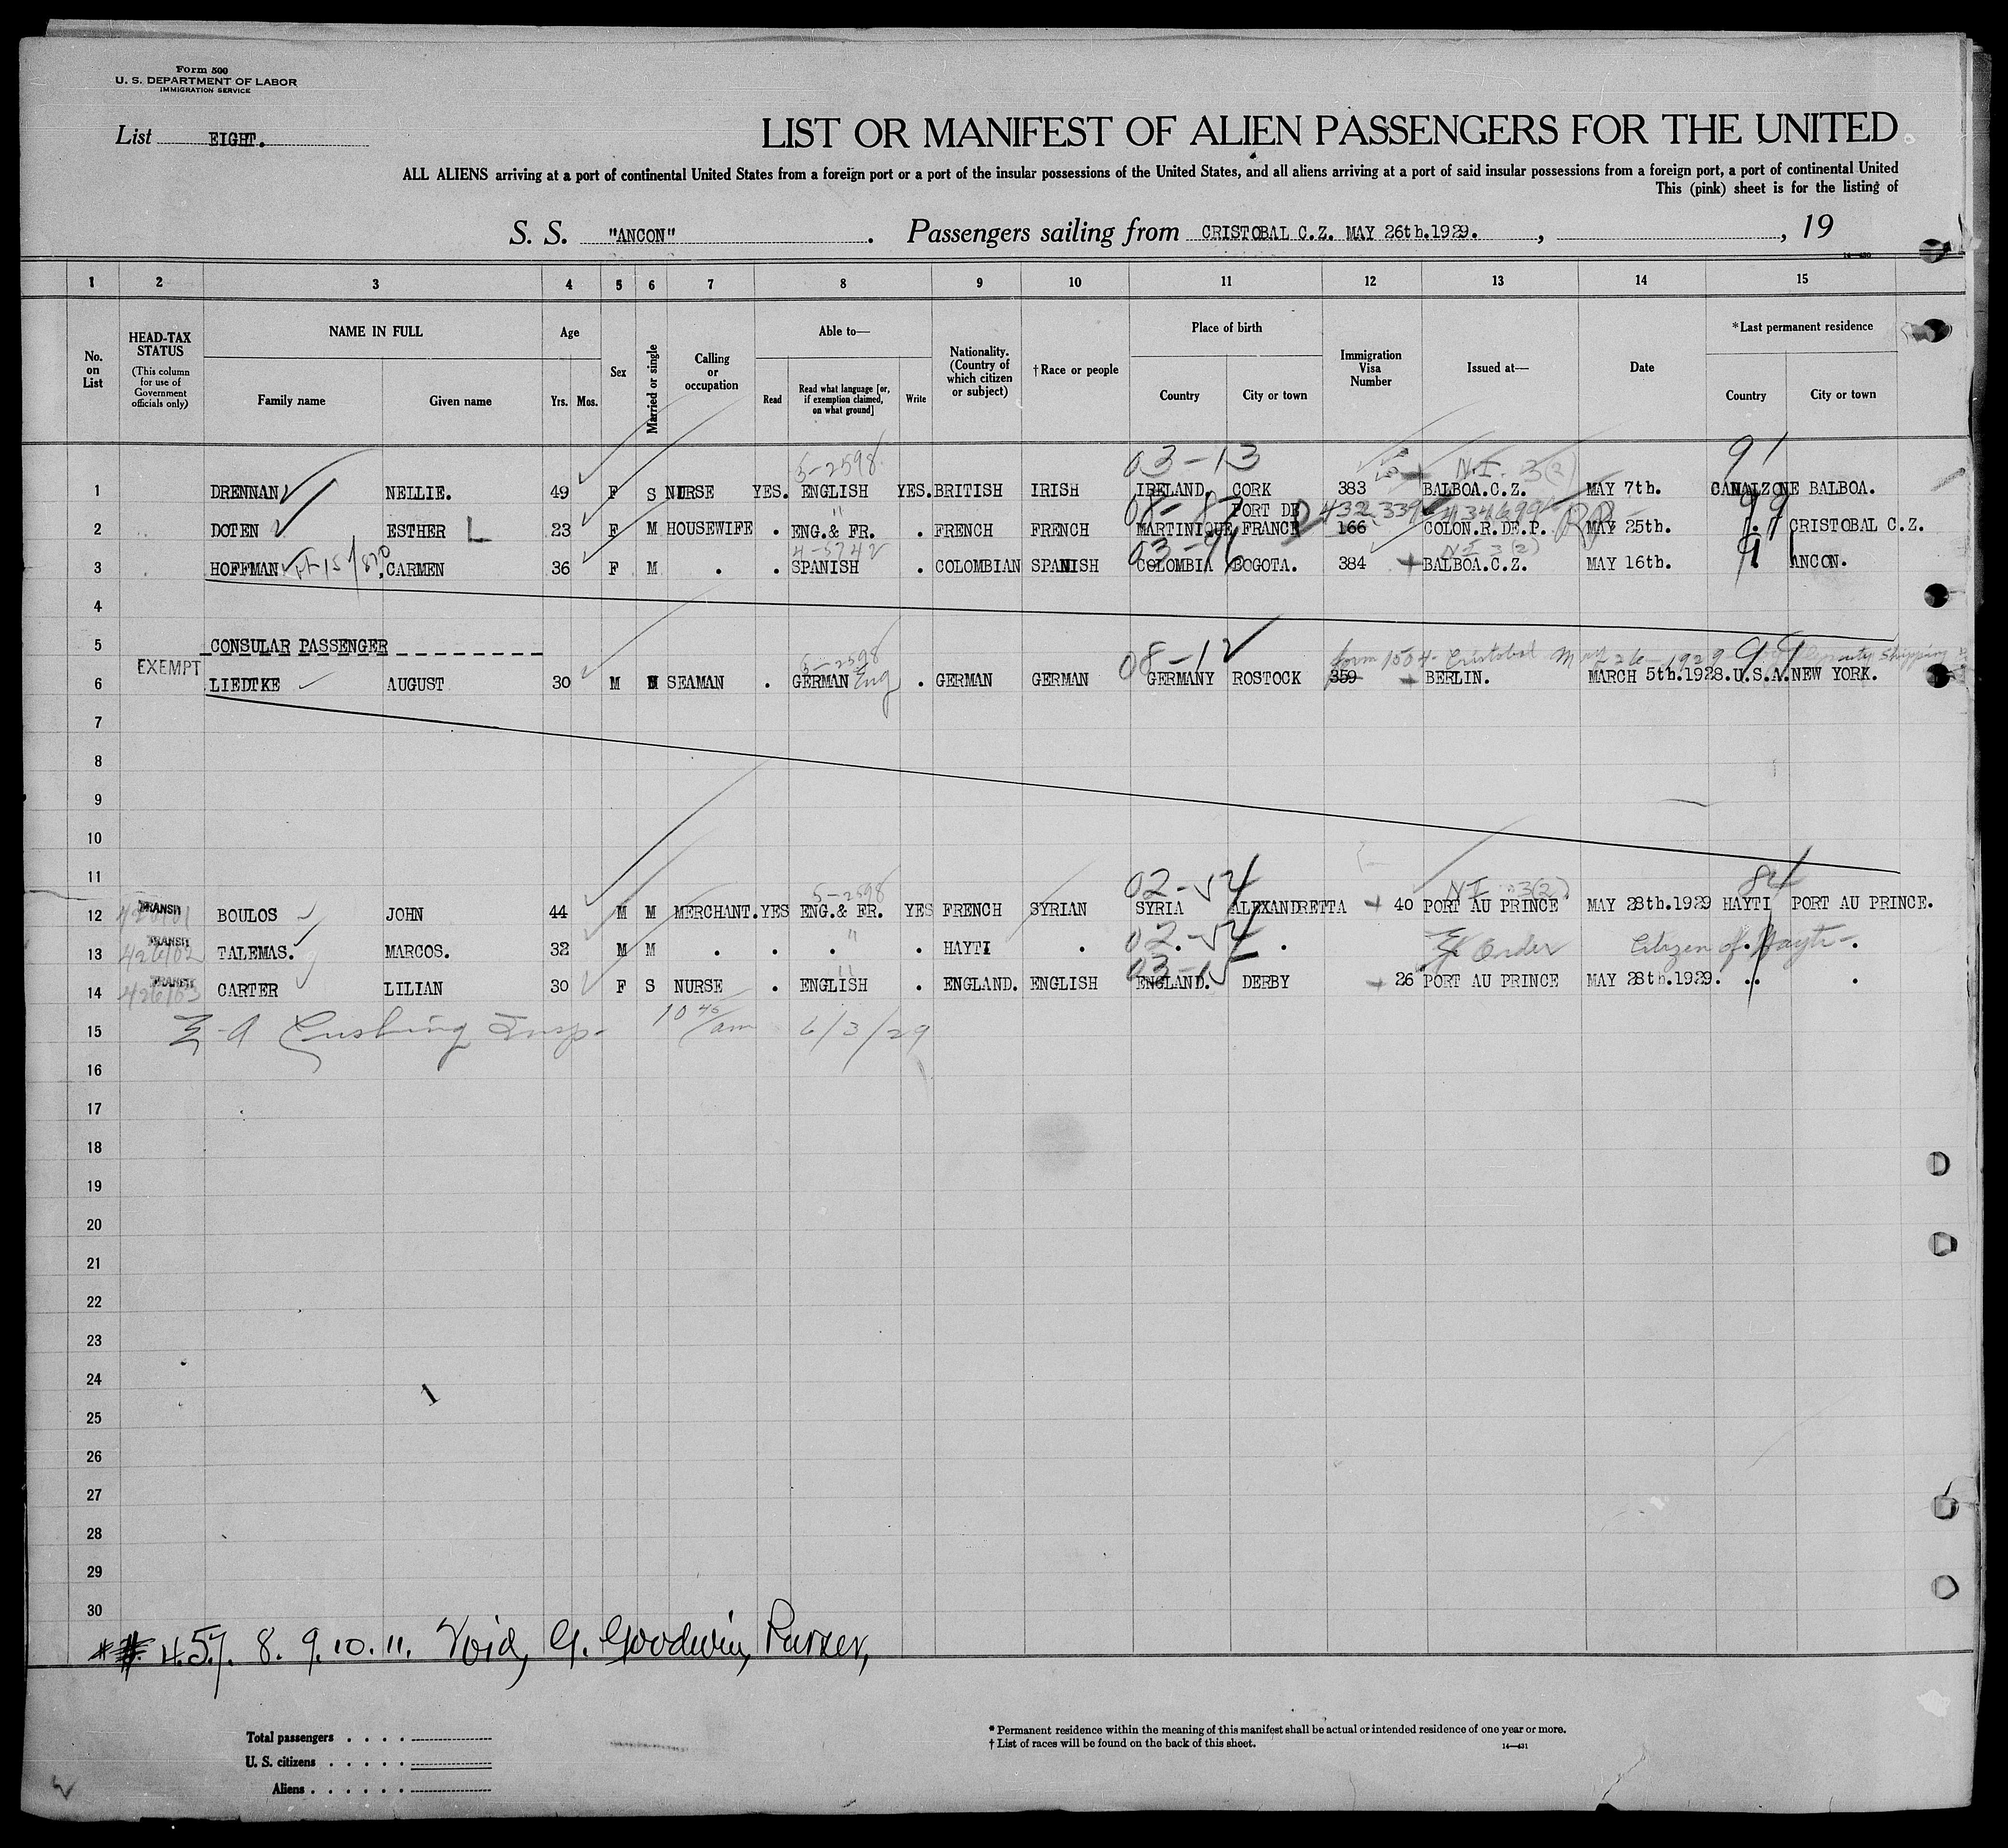 Form 500
U. S. DEPARTMENT OF LABOR
IMMIGRATION SERVICE
List EIGHT.
LIST OR MANIFEST OF ALIEN PASSENGERS FOR THE UNITED
ALL ALIENS arriving at a port of continental United States from a foreign port or a port of the insular possessions of the United States, and all aliens arriving at a port of said insular possessions from a foreign port, a port of continental United
This (pink) sheet is for the listing of
S. S. "ANCON". Passengers sailing from CRISTOBAL C.Z. MAY 26th.1929. , , 19
14—430
1 2 3 4 5 6 7 8 9 10 11 12 13 14 15
No. on List
HEAD-TAX STATUS (This column for use of Government officials only)
NAME IN FULL Family name Given name
Age Yrs. Mos.
Sex
Married or single
Calling or occupation
Able to— Read Read what language [or, if exemption claimed, on what ground] Write
Nationality. (Country of which citizen or subject)
†Race or people
Place of birth Country City or town
Immigration Visa Number
Issued at—
Date
*Last permanent residence Country City or town
5-2598 03-13 N.I. 3(2) 91
1 DRENNAN NELLIE. 49 F S NURSE YES. ENGLISH YES. BRITISH IRISH IRELAND. CORK 383 BALBOA.C.Z. MAY 7th. CANALZONE BALBOA.
" 08-87 PORT DE 432339 434699 RP 99
2 DOTEN ESTHER L 23 F M HOUSEWIFE . ENG.& FR. . FRENCH FRENCH MARTINIQUE FRANCE 166 COLON.R.DE.P. MAY 25th. . CRISTOBAL C.Z.
4-5742 03-96 N I 3(2) 91
3 HOFFMAN, CARMEN 36 F M . . SPANISH . COLOMBIAN SPANISH COLOMBIA BOGOTA. 384 BALBOA.C.Z. MAY 16th. ANCON.
4
5 CONSULAR PASSENGER
EXEMPT 5-2598 08-12 form 1504 Cristobal May 26-1929 99 Shipping
6 LIEDTKE AUGUST 30 M M SEAMAN . GERMAN Eng . GERMAN GERMAN GERMANY ROSTOCK 359 BERLIN. MARCH 5th.1928. U.S.A. NEW YORK.
7
8
9
10
11
TRANSIT 5-2598 02-54 N I 3(2) 84
12 426101 BOULOS JOHN 44 M M MERCHANT. YES ENG.& FR. YES FRENCH SYRIAN SYRIA ALEXANDRETTA 40 PORT AU PRINCE MAY 28th.1929 HAYTI PORT AU PRINCE.
TRANSIT " 02-54
13 426102 TALEMAS. MARCOS. 32 M M . . . . HAYTI . . . Ex Order Citizen of Hayti . .
TRANSIT " 03-15
14 426103 CARTER LILIAN 30 F S NURSE . ENGLISH . ENGLAND. ENGLISH ENGLAND. DERBY 26 PORT AU PRINCE MAY 28th.1929. .. .
15 E A Cushing Insp. 10 45/am 6/3/29
16
17
18
19
20
21
22
23
24
25
26
27
28
29
30
# 4.5.7. 8. 9. 10. 11. Void, G. Goodwin, Purser,
Total passengers
U. S. citizens
Aliens
* Permanent residence within the meaning of this manifest shall be actual or intended residence of one year or more.
† List of races will be found on the back of this sheet.
14—431